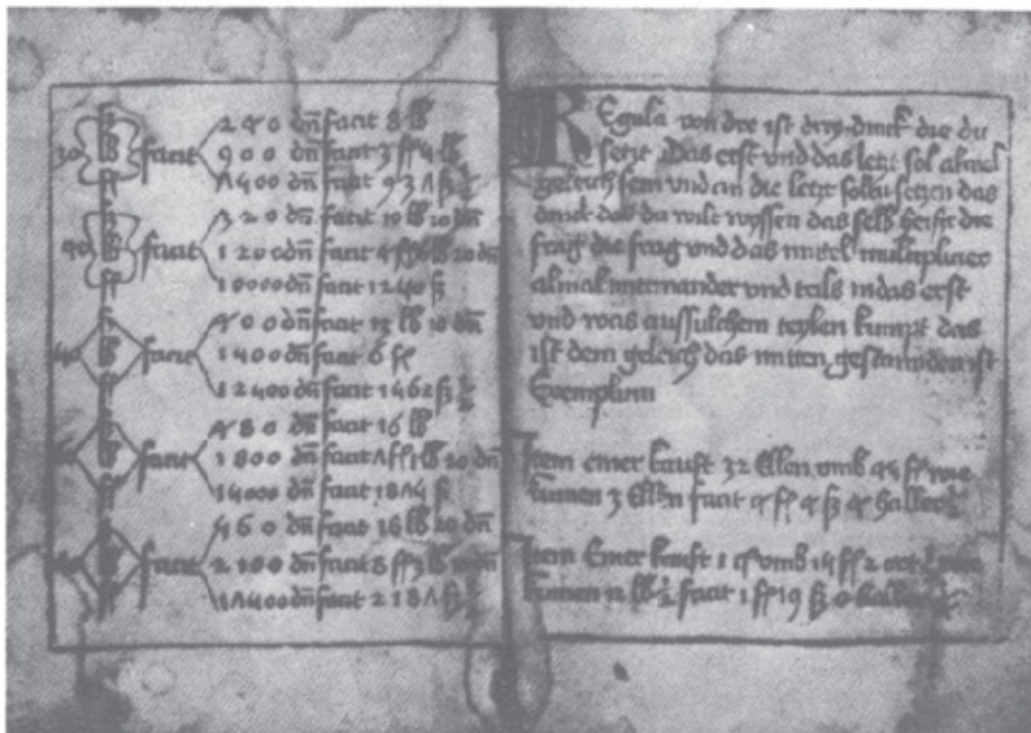 30 facit
240 dn facit 8 lb
900 dn facit 3 ff 5 lb
7500 dn facit 937 ß ½
40 facit
320 dn facit 10 lb 20 dn
1200 dn facit 4 ff 6 lb 20 dn
10000 dn facit 1250 ß
50 facit
400 dn facit 13 lb 10 dn
1500 dn facit 6 ff
12500 dn facit 1562 ß ½
facit
480 dn facit 16 lb
1800 dn facit 7 ff 1 lb 20 dn
15000 dn facit 1875 ß
facit
560 dn facit 18 lb 20 dn
2100 dn facit 8 ff 3 lb 10 dn
17500 dn facit 2187 ß ½
REgula von dre ist drey dinck die du
setzt Das erst vnd das letzt sol almal
geleich sein vnd an die letzt soltu setzen das
dinck das du wilt wyssen das selb heist die
frag die frag vnd das mittel multiplicier
almal mitenander vnd teils in das erst
vnd was aus sulchem teylen kumpt das
ist dem geleich das mitten gestanden ist
Exemplum
Item einer kauft 32 Ellen vmb 45 ff wie
kumen 3 Ellen facit 4 ff 4 ß 4 haller ½
Item Einer kauft 1 c vmb 15 ff 2 ort ½ wie
kumen 12 lb ½ facit 1 ff 19 ß 0 haller